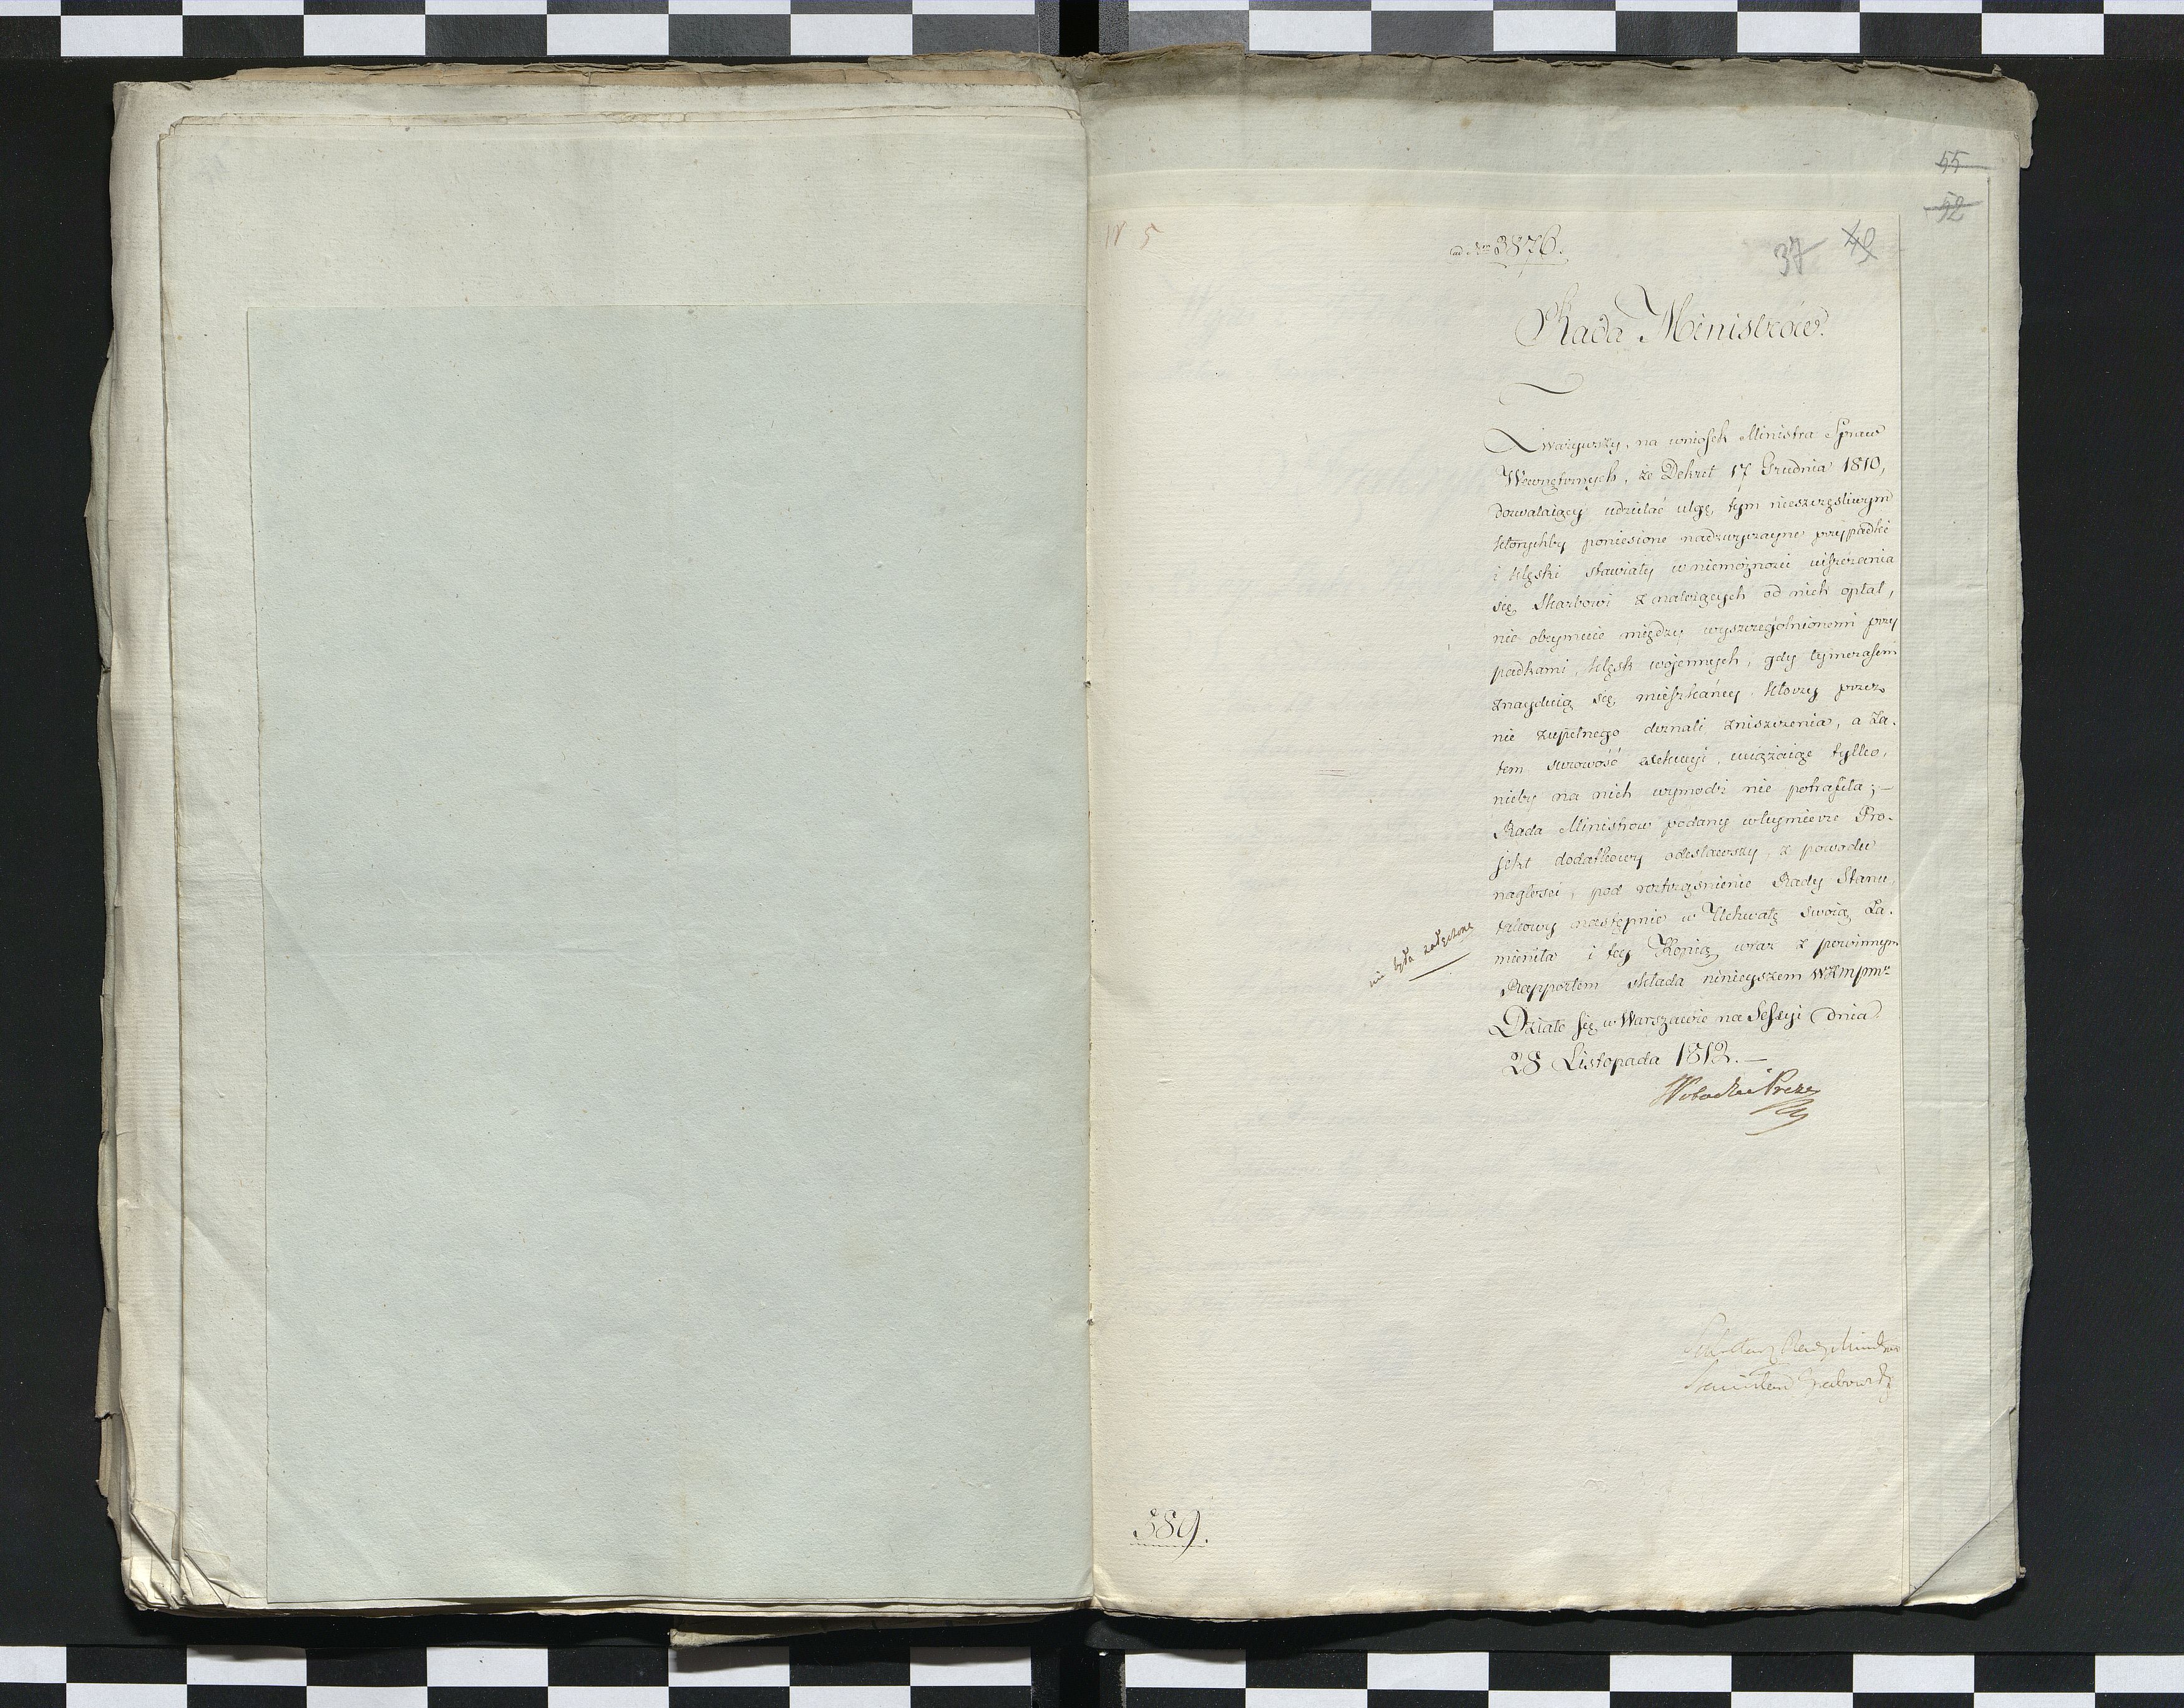 55
52
N 5
ad Nrum 3876.
37 49
Rada Ministrów.
Zważywszy, na wniosek Ministra Spraw
Wewnętrznych, że Dekret 17 Grudnia 1810,
dozwalaiący udzielać ulgę, tym nieszczęśliwym
którychby poniesione nadzwyczayne przypadki
i klęski stawiały w niemożności uiszczenia
się Skarbowi z należących od nich opłat,
nie obeymuie między wyszczególnionemi przy
padkami, klęsk wojennych, gdy tymczasem
znayduią się mieszkańcy którzy przez
nie zupełnego doznali zniszczenia, a za-
tem surowość exekucyi, uciążaiąc tylko,
nicby na nich wymodz nie potrafiła; —
Rada Ministrow podany w tey mierze Pro-
jekt dodatkowy odesławszy, z powodu
nagłości, pod roztrząśnienie Rady Stanu,
takowy następnie w Uchwałę swoią za-
mieniła i tey Kopią wraz z powinnym
Rapportem składa ninieyszem WKMPMu
nie była załączona
Działo się w Warszawie na Sessyi dnia
28 Listopada 1812. —
Sekretarz Rady Ministrów
Stanisław Grabowski
589.